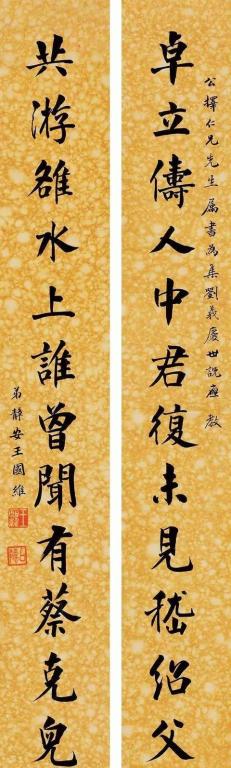 公擇仁兄先生屬書為集劉義慶世說應教
卓立儔人中君復未見嵇紹父
共游雒水上誰曾聞有蔡克兒
弟靜安王國維